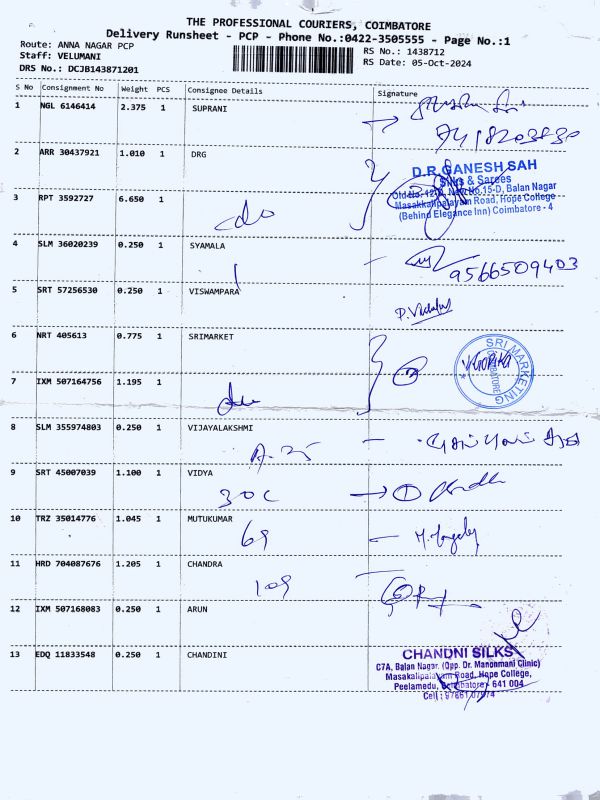 THE PROFESSIONAL COURIERS, COIMBATORE
Delivery Runsheet - PCP - Phone No.:0422-3505555 - Page No.:1
Route: ANNA NAGAR PCP
Staff: VELUMANI
DRS No.: DCJB143871201
RS No.: 1438712
RS Date: 05-Oct-2024
S No Consignment No Weight PCS Consignee Details Signature
1 NGL 6146414 2.375 1 SUPRANI
2 ARR 30437921 1.010 1 DRG
D.R.GANESH SAH
Silks & Sarees
Old No. 12-B, New No.15-D, Balan Nagar
Masakkalipalayam Road, Hope College
(Behind Elegance Inn) Coimbatore - 4
3 RPT 3592727 6.650 1
do
4 SLM 36020239 0.250 1 SYAMALA
9566509403
5 SRT 57256530 0.250 1 VISWAMPARA
6 NRT 405613 0.775 1 SRIMARKET
SRI MARKETING
COIMBATORE
7 IXM 507164756 1.195 1
do
8 SLM 355974803 0.250 1 VIJAYALAKSHMI
A-25
9 SRT 45007039 1.100 1 VIDYA
30C
10 TRZ 35014776 1.045 1 MUTUKUMAR
69
11 HRD 704087676 1.205 1 CHANDRA
109
12 IXM 507168083 0.250 1 ARUN
13 EDQ 11833548 0.250 1 CHANDINI
CHANDNI SILKS
C7A, Balan Nagar. (Opp. Dr. Manonmani Clinic)
Masakalipalayam Road, Hope College,
Peelamedu, Coimbatore - 641 004
Cell : 97861 07974